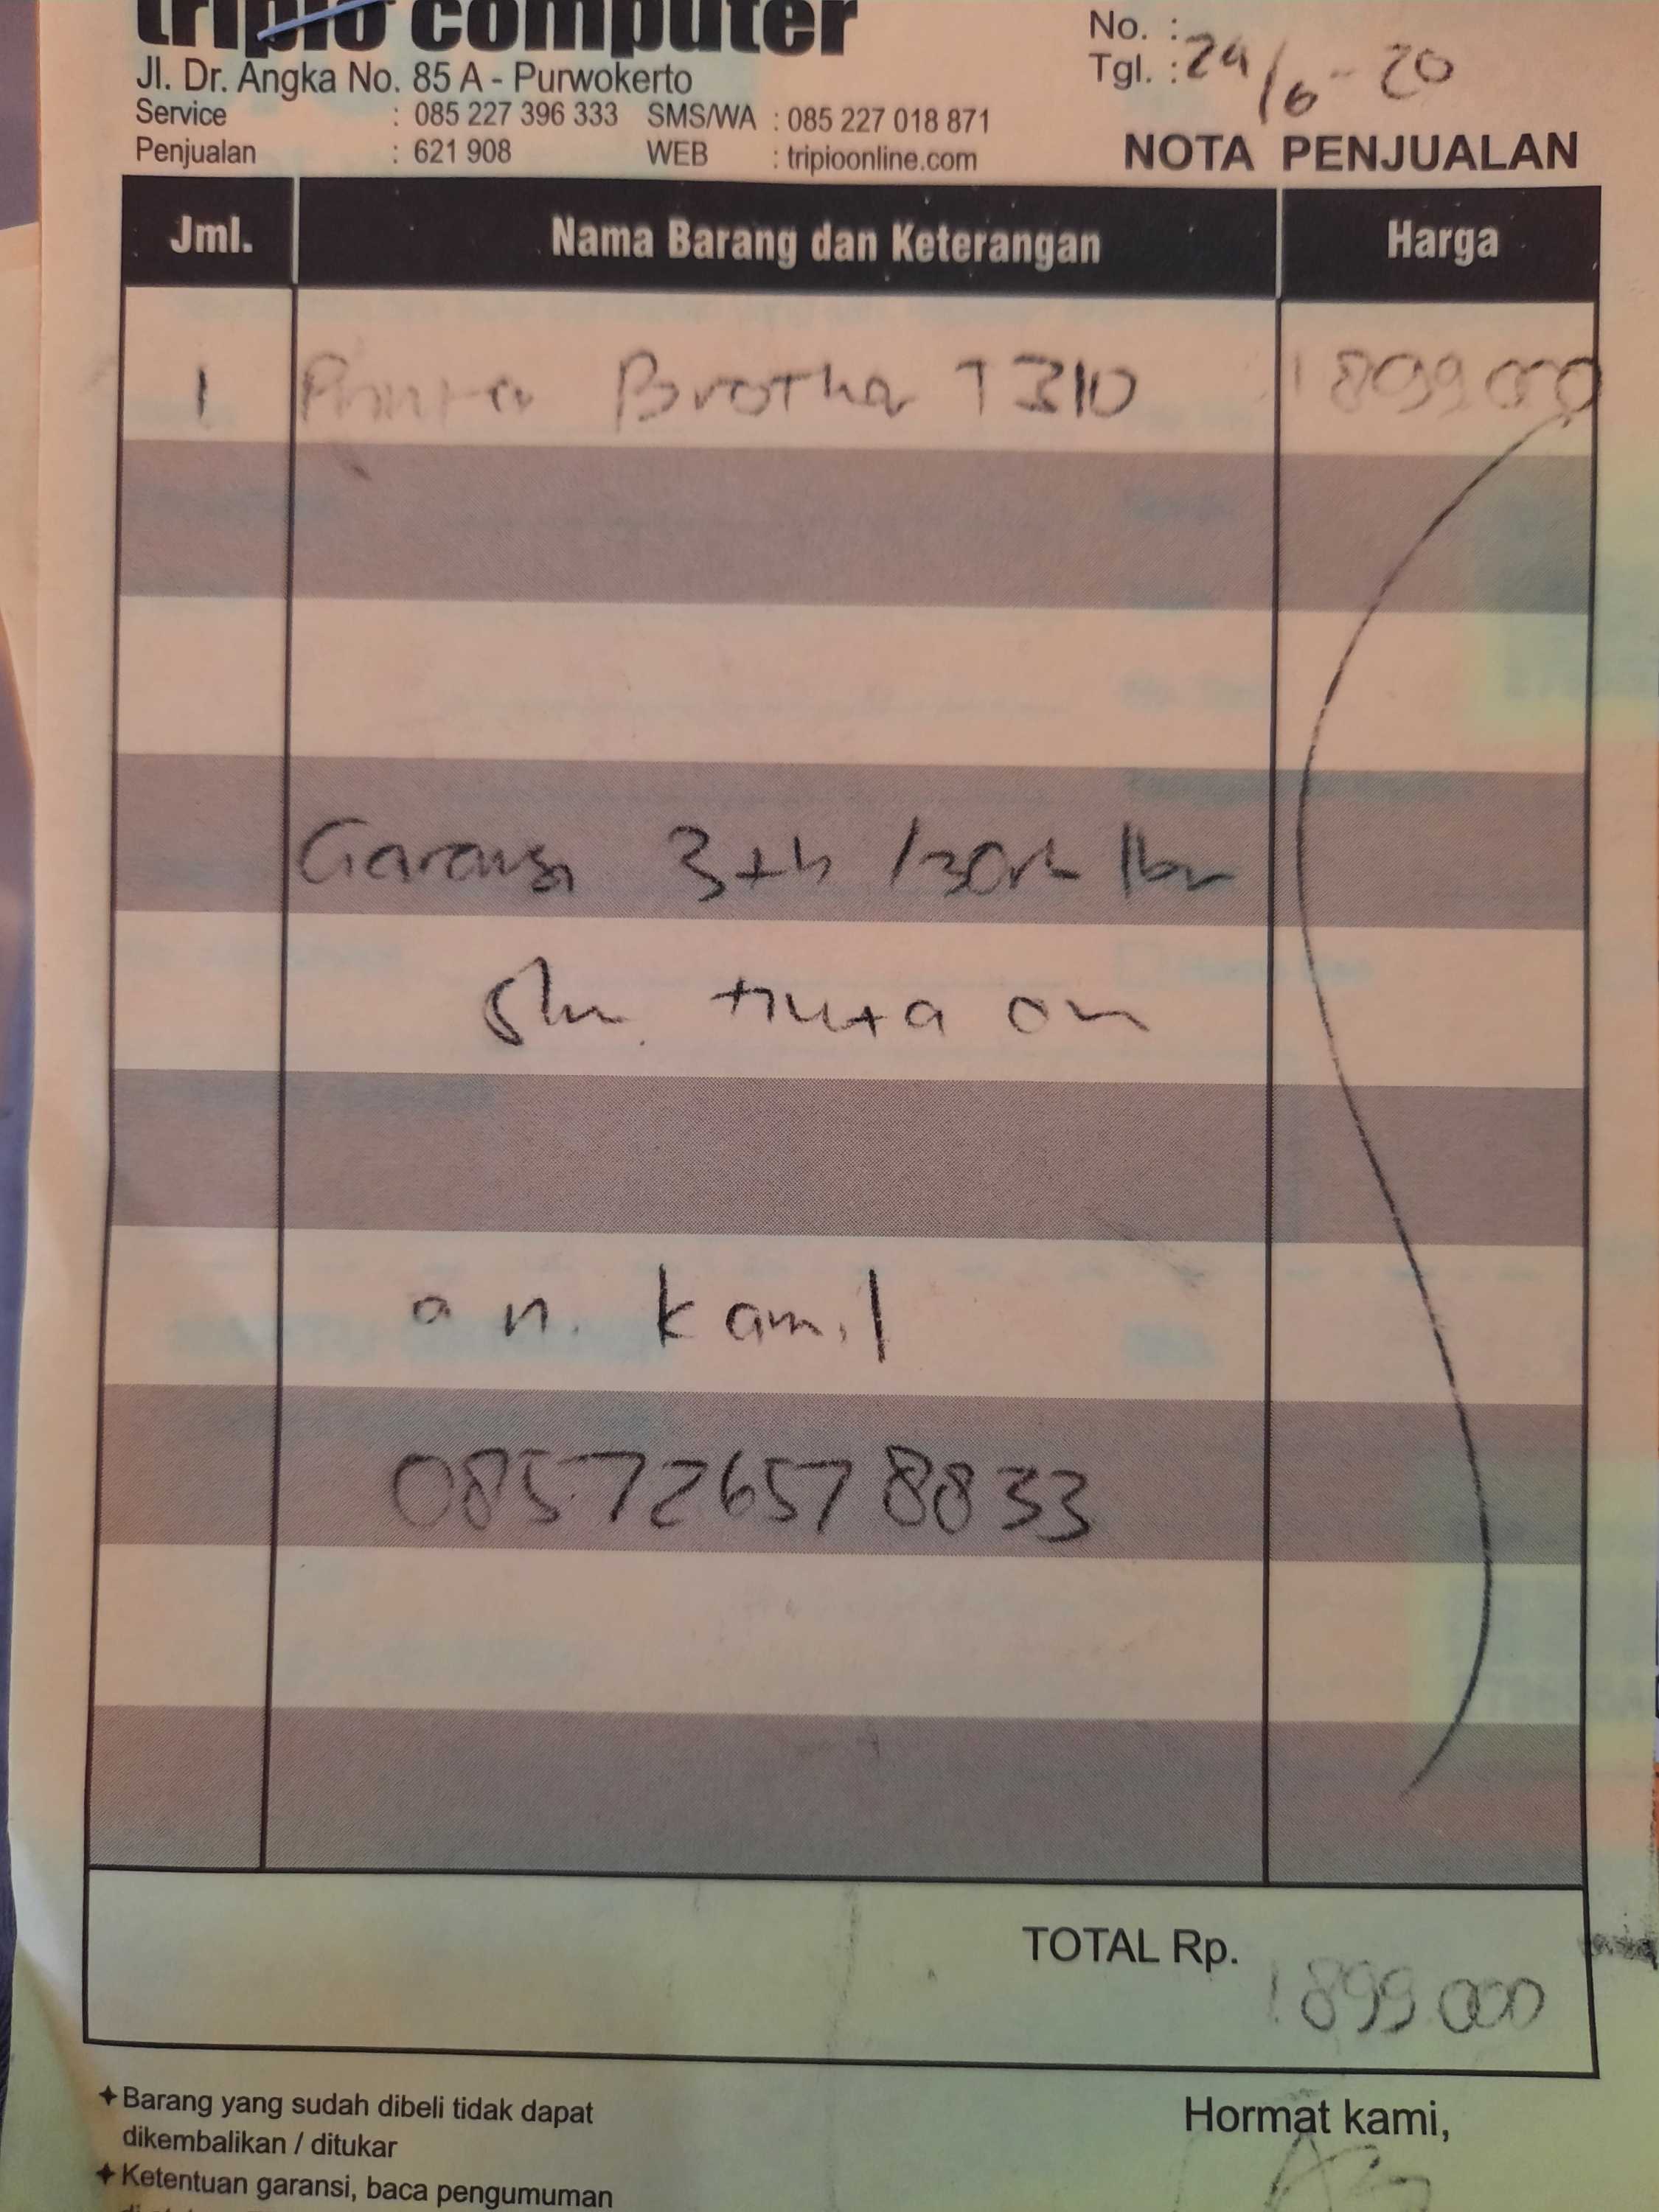 tripio computer
Jl. Dr. Angka No. 85 A - Purwokerto
Service : 085 227 396 333 SMS/WA : 085 227 018 871
Penjualan : 621 908 WEB : tripioonline.com
No. :
Tgl. : 24/6-20
NOTA PENJUALAN
Jml. Nama Barang dan Keterangan Harga
1 Printer Brother T310 1899000
Garansi 3th /30rb lbr
tinta on
an. kamil
085726578833
TOTAL Rp. 1899000
✦ Barang yang sudah dibeli tidak dapat
dikembalikan / ditukar
✦ Ketentuan garansi, baca pengumuman
Hormat kami,